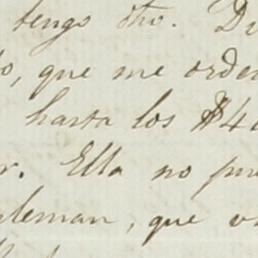 tengo dho. D
o, que me orde
hasta los $4
r. Ella no pu
leman, que v